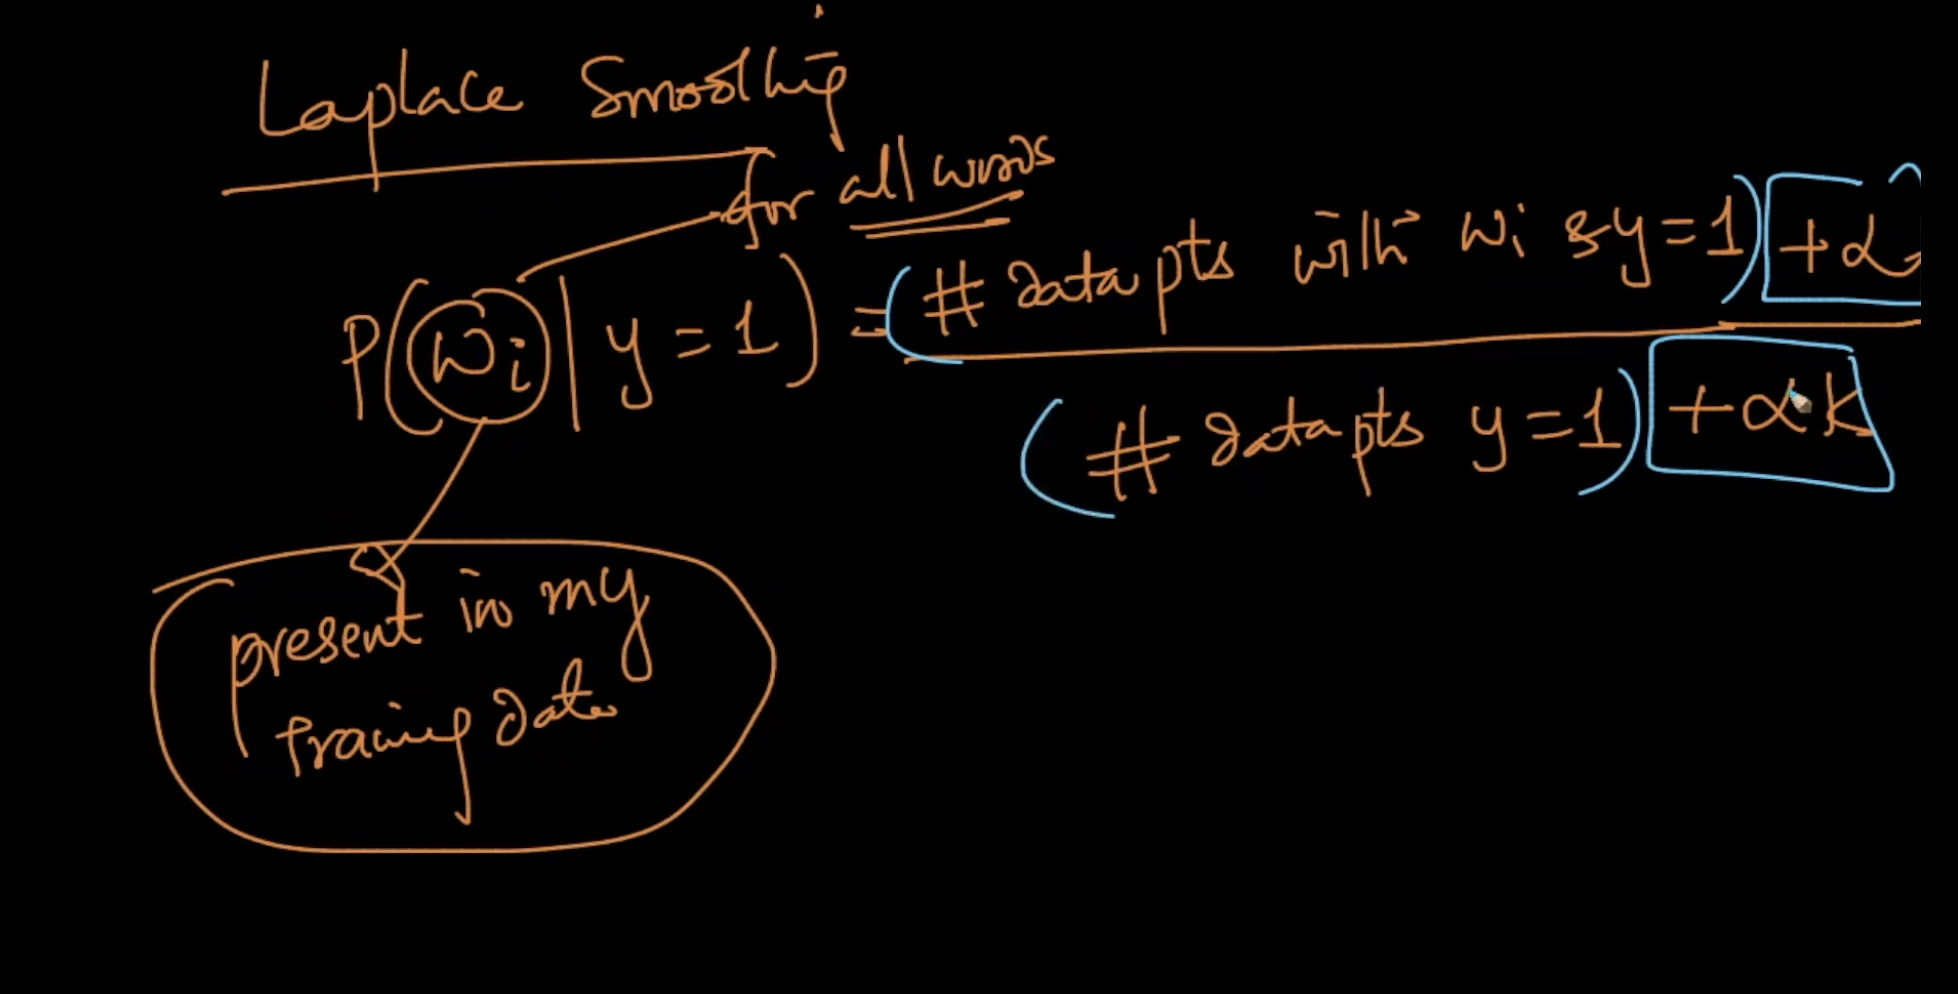 Laplace Smoothing
for all words
P(wi | y = 1) = (# data pts with wi & y = 1) + α
(# data pts y = 1) + αk
present in my
training data